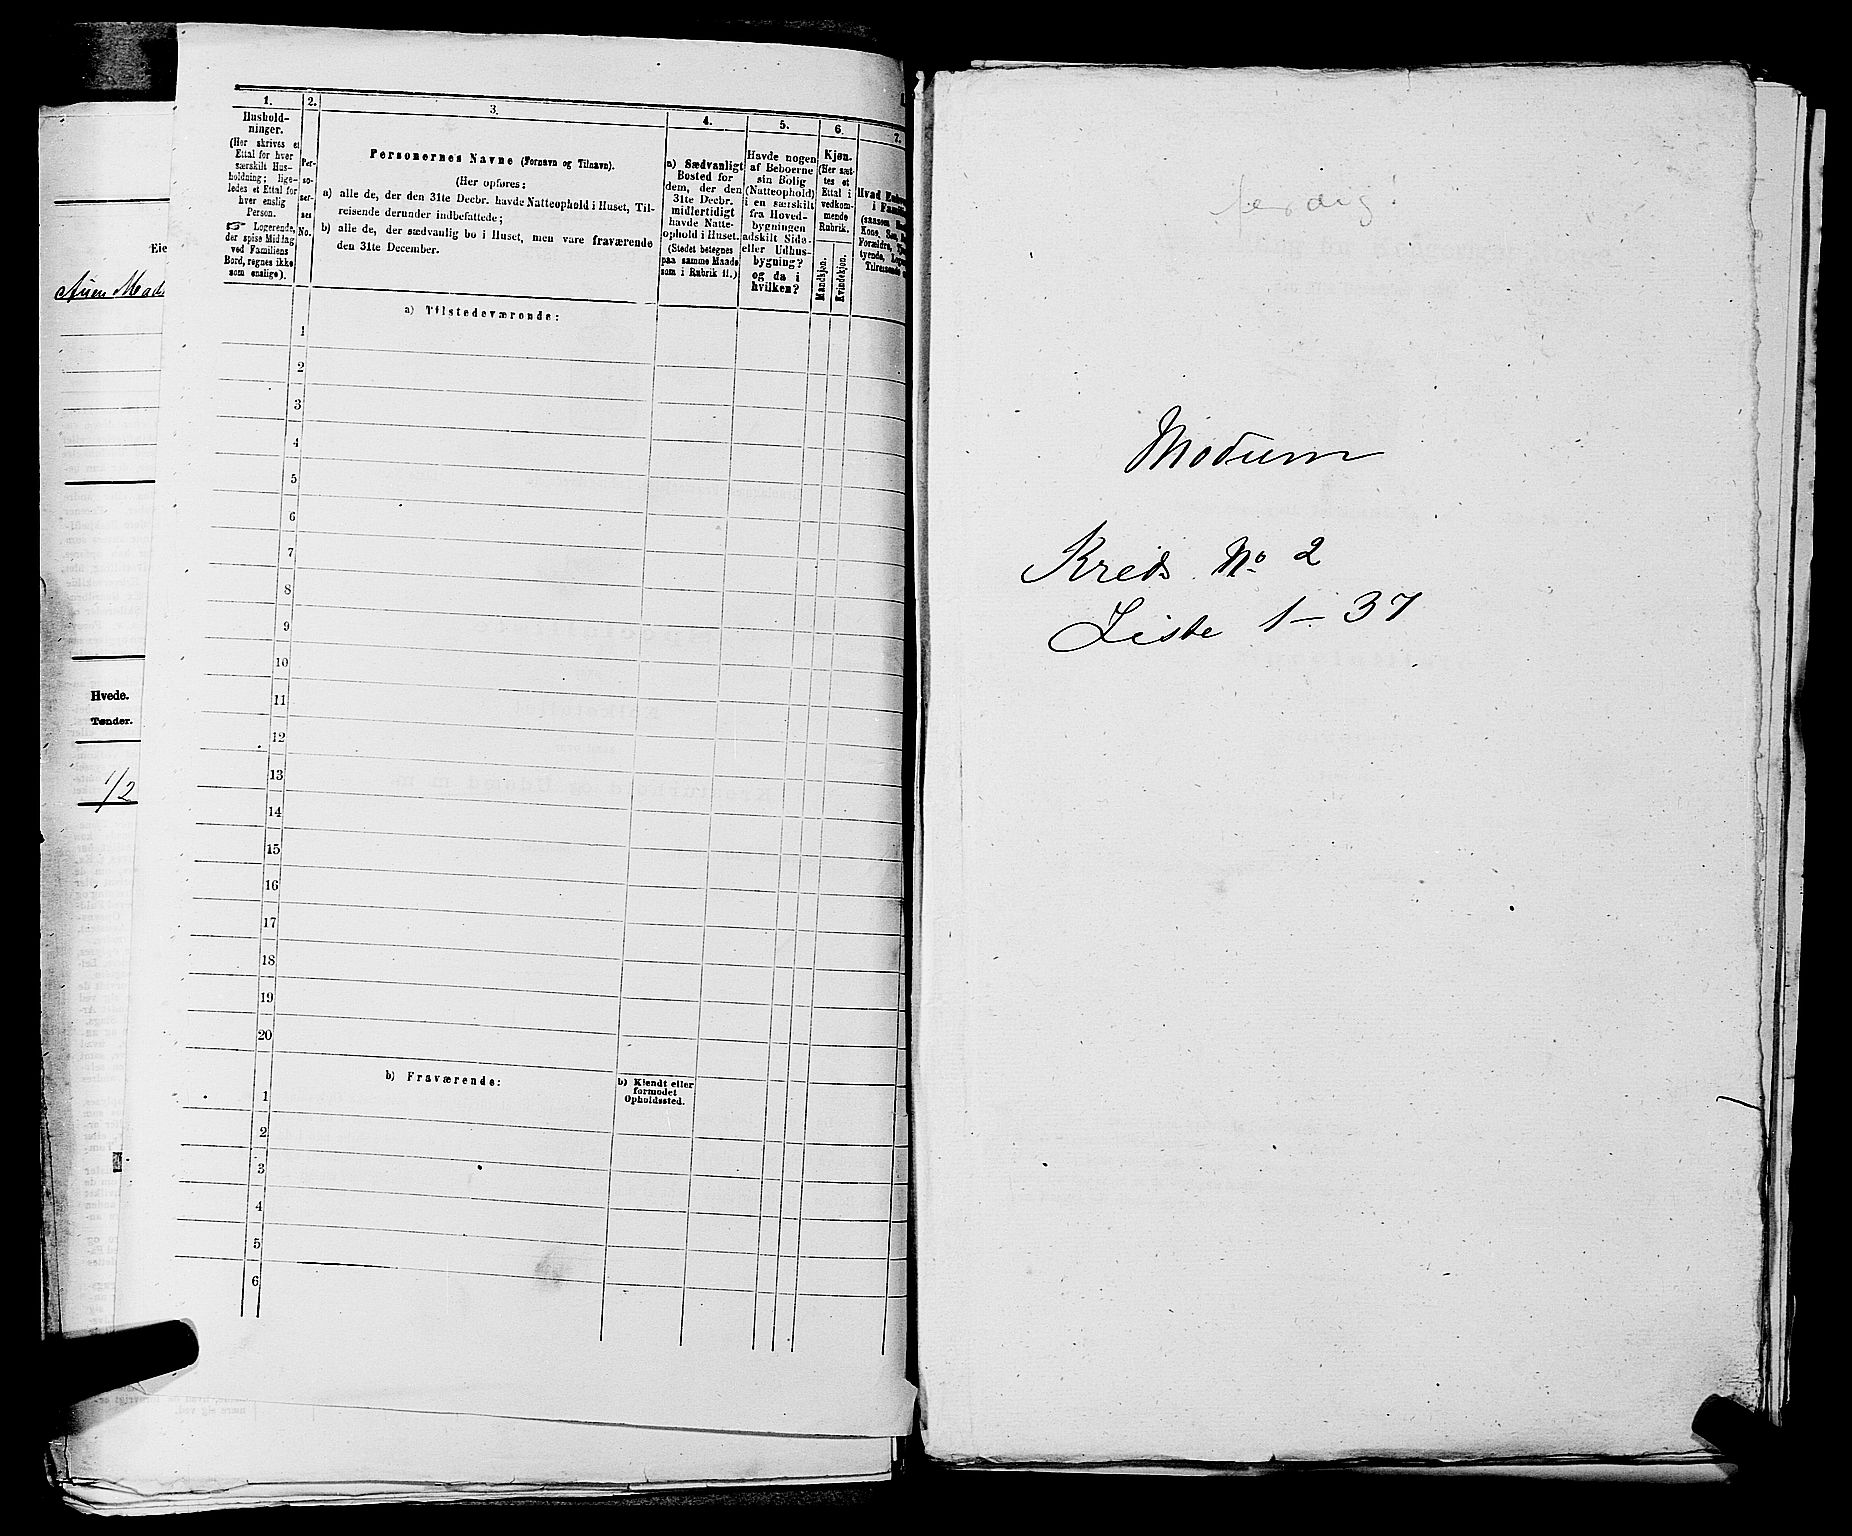 Eie
Hvede.
Tønder.
1/2
1.
Hushold-
ninger.
(Her skrives et
Ettal for hver
særskilt Hus-
holdning; lige-
ledes et Ettal for
hver enslig
Person.
☞ Logerende,
der spise Middag
ved Familiens
Bord, regnes ikke
som enslige).
2.
Per-
so-
ner-
nes
No.
3.
Personernes Navne (Fornavn og Tilnavn).
(Her opføres:
a) alle de, der den 31te Decbr. havde Natteophold i Huset, Til-
reisende derunder indbefattede;
b) alle de, der sædvanlig bo i Huset, men vare fraværende
den 31te December.
4.
a) Sædvanligt
Bosted for
dem, der den
31te Decbr.
midlertidigt
havde Natte-
ophold i Huset.
(Stedet betegnes
paa samme Maade
som i Rubrik 11.)
5.
Havde nogen
af Beboerne
sin Bolig
(Natteophold)
i en særskilt
fra Hoved-
bygningen
adskilt Side-
eller Udhus-
bygning?
og da i
hvilken?
6.
Kjøn.
(Her sæt-
tes et
Ettal i
vedkom-
mende
Rubrik.
Mandkjøn.
Kvindekjøn.
7.
Hvad
i Fami
(saasom
Kone, Søn,
Forældre,
Tilreisende
a) Tilstedeværende:
1
2
3
4
5
6
7
8
9
10
11
12
13
14
15
16
17
18
19
20
b) Fraværende:
b) Kjendt eller
formodet
Opholdssted.
1
2
3
4
5
6
ferdig!
Modum
Kreds No 2
Liste 1 – 37